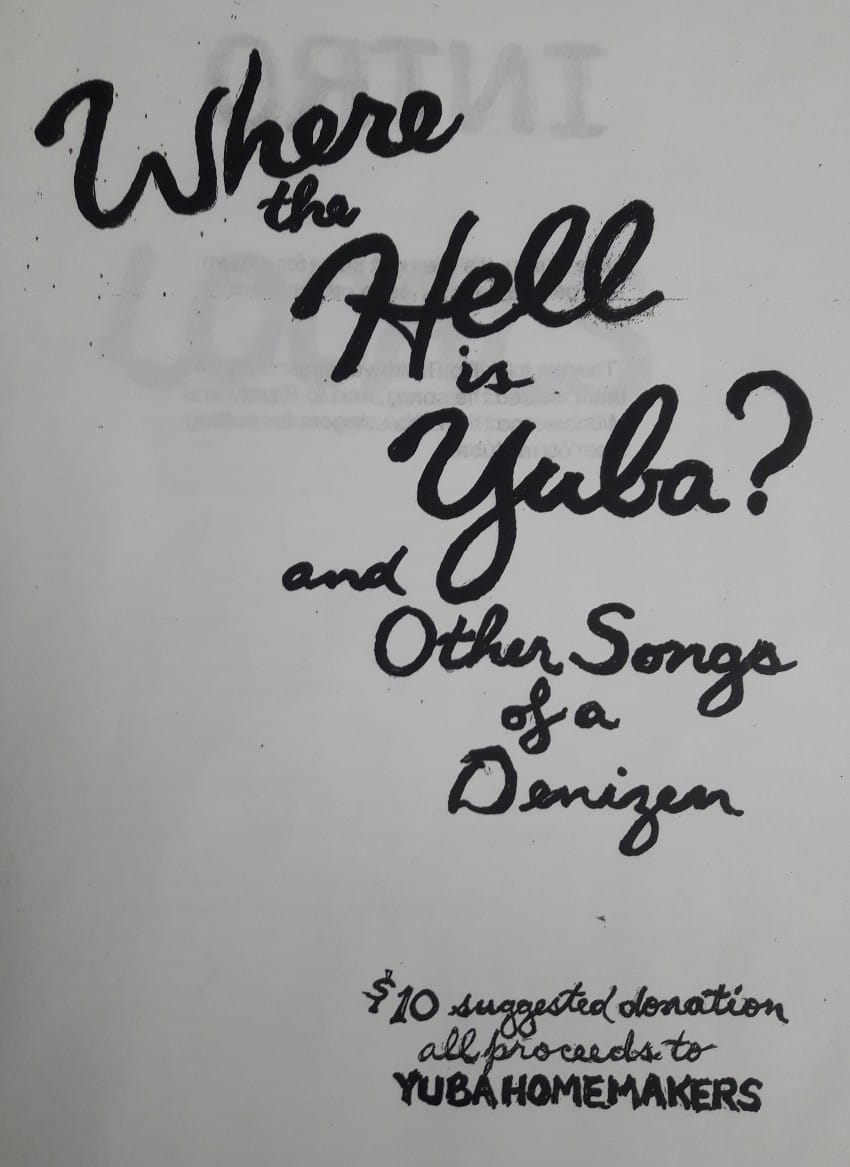 Where
the
Hell
is
Yuba?
and
Other Songs
of a
Denizen
$10 suggested donation
all proceeds to
YUBA HOMEMAKERS